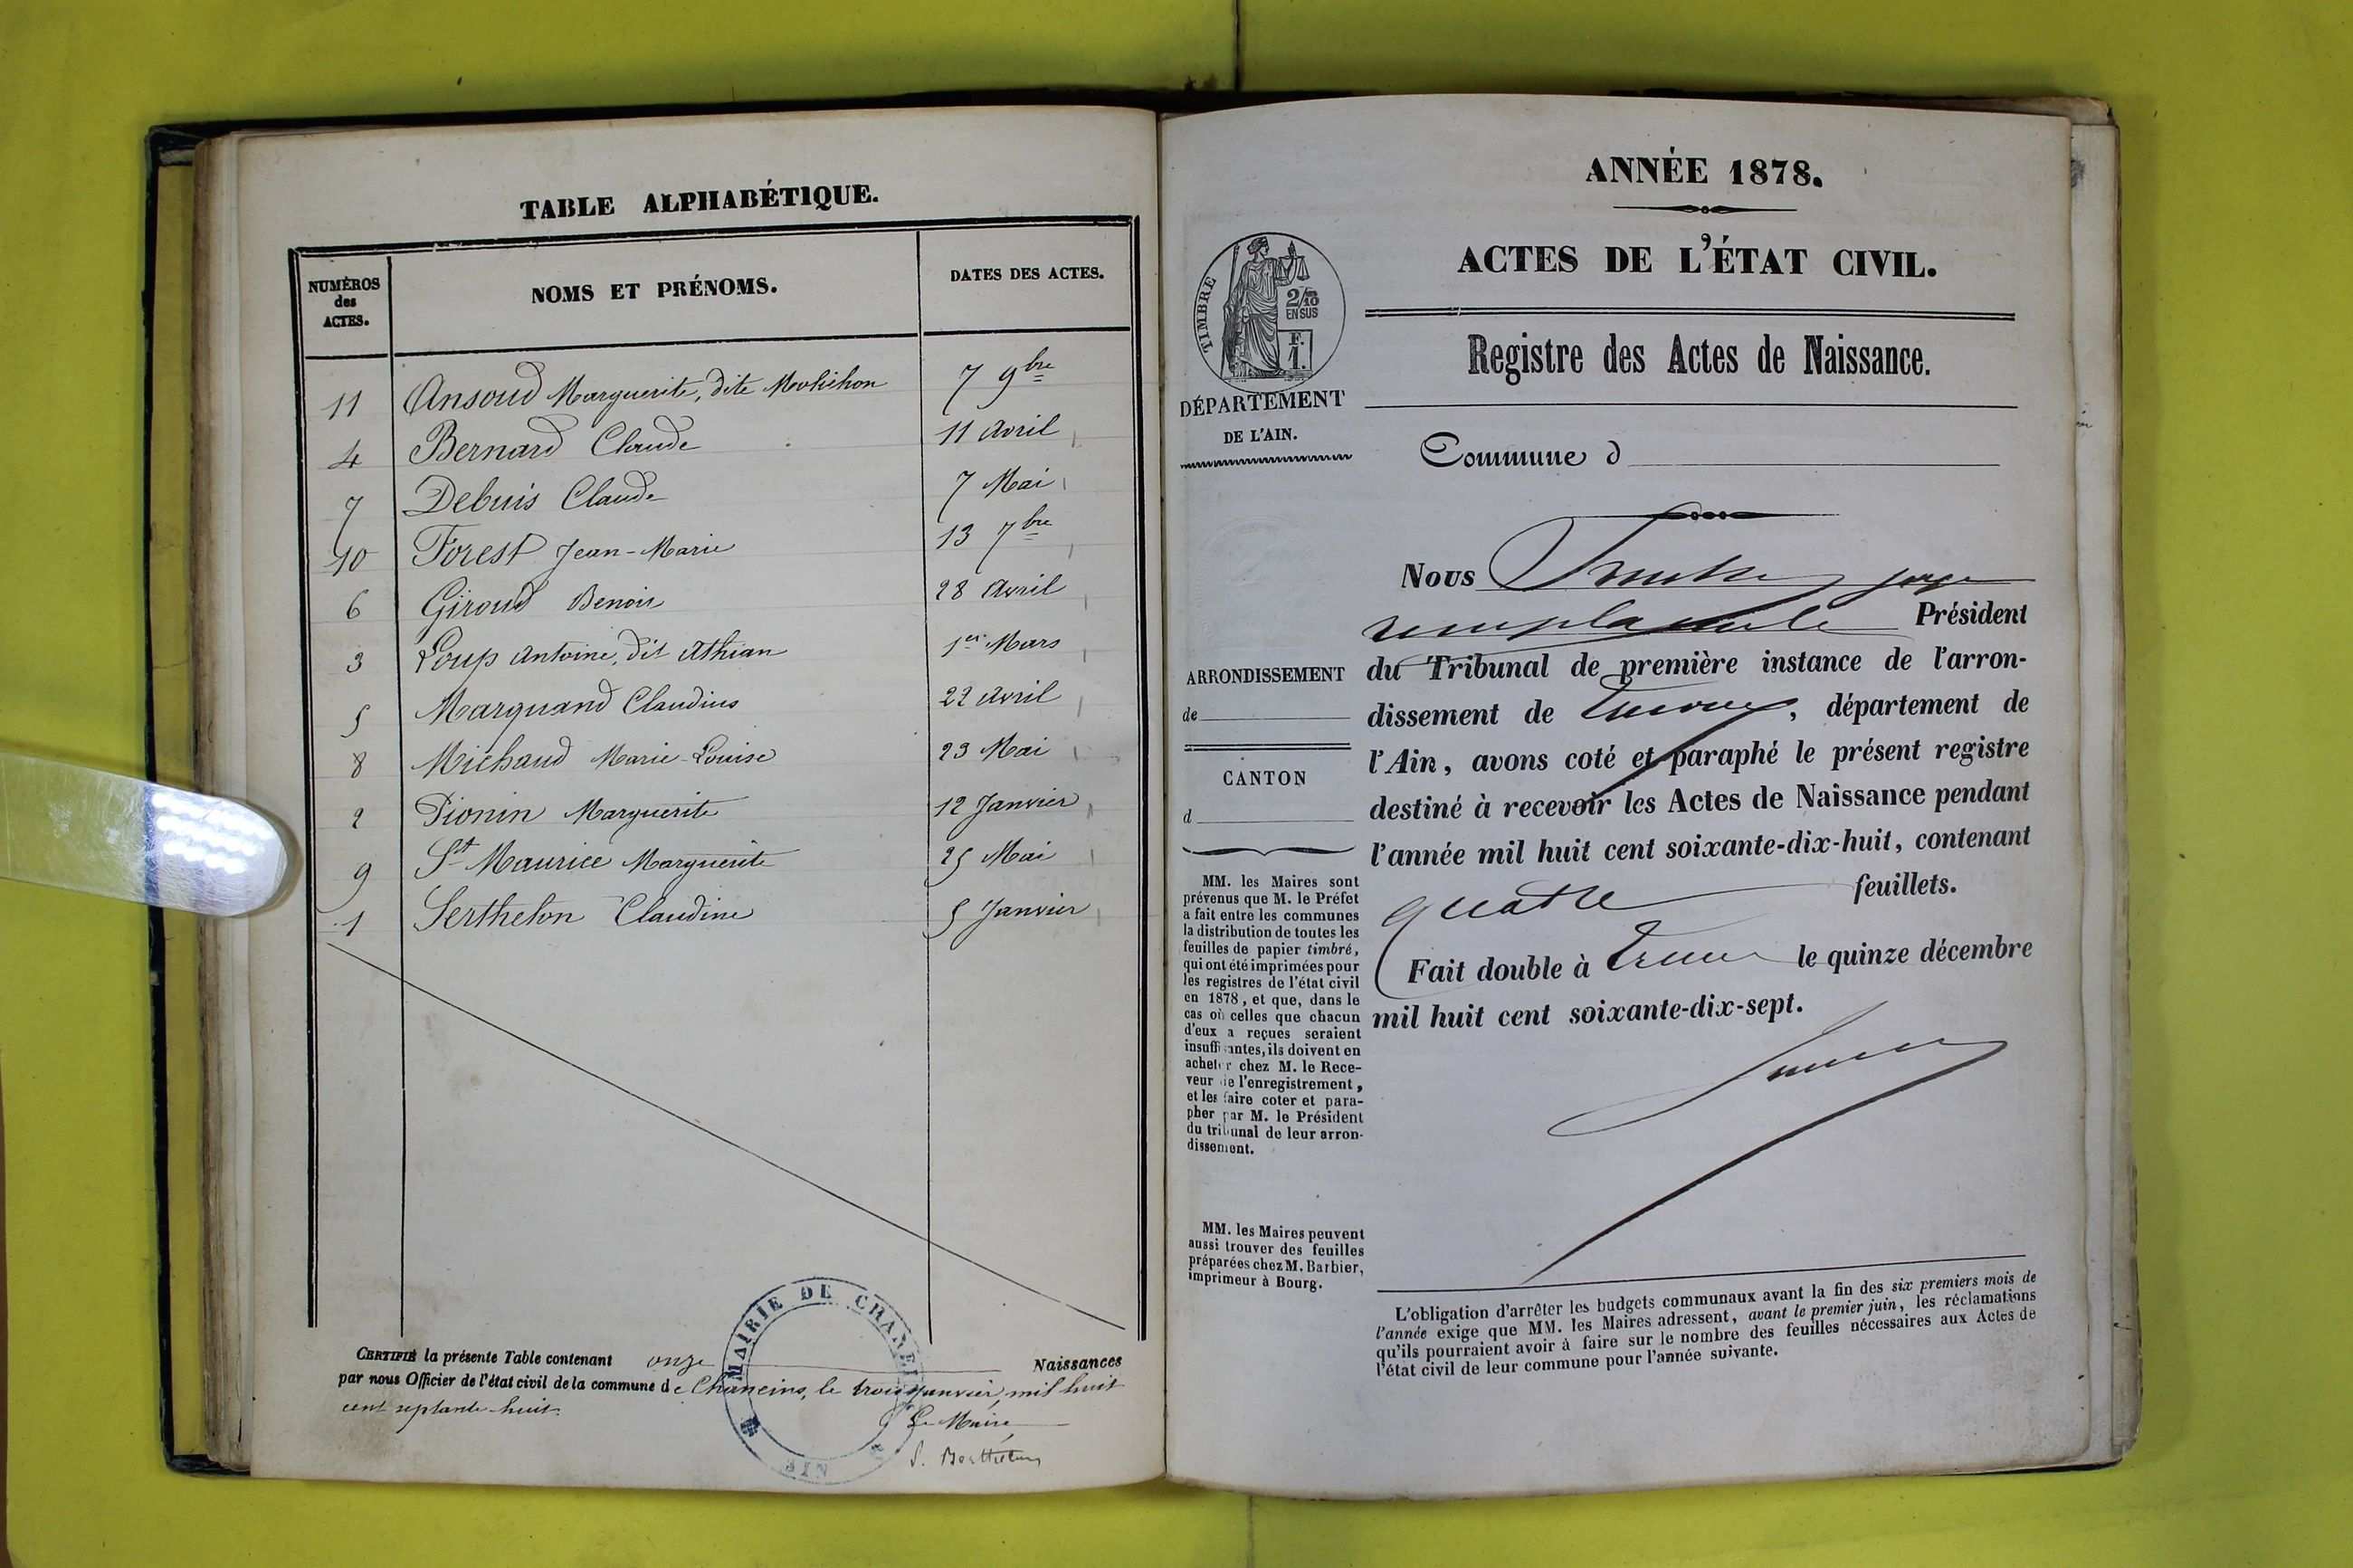 TABLE ALPHABÉTIQUE.
NUMÉROS
des
ACTES.
NOMS ET PRÉNOMS.
DATES DES ACTES.
11 Ansoud Marguerite, dite Mochichon 7 9bre
4 Bernard Claude 11 Avril
7 Debuis Claude 7 Mai
10 Forest Jean-Marie 13 7bre
6 Giroud Benoit 28 Avril
3 Loup Antoine, dit Athian 1er Mars
5 Marquand Claudius 22 Avril
8 Michaud Marie-Louise 23 Mai
2 Pionin Marguerite 12 Janvier
9 St Maurice Marguerite 25 Mai
1 Serthelon Claudine 5 Janvier
CERTIFIÉ la présente Table contenant onze Naissances
par nous Officier de l'état civil de la commune de Chaneins, le trois janvier mil huit
cent septante-huit.
Le Maire,
MAIRIE DE CHANEINS
AIN
ANNÉE 1878.
ACTES DE L'ÉTAT CIVIL.
Registre des Actes de Naissance.
TIMBRE
2/10
EN SUS
F.
1.
DÉPARTEMENT
DE L'AIN.
Commune d
Nous juge
remplaçant le Président
du Tribunal de première instance de l'arron-
dissement de Trévoux, département de
l'Ain, avons coté et paraphé le présent registre
destiné à recevoir les Actes de Naissance pendant
l'année mil huit cent soixante-dix-huit, contenant
quatre feuillets.
Fait double à Trévoux le quinze décembre
mil huit cent soixante-dix-sept.
ARRONDISSEMENT
de
CANTON
d
MM. les Maires sont
prévenus que M. le Préfet
a fait entre les communes
la distribution de toutes les
feuilles de papier timbré,
qui ont été imprimées pour
les registres de l'état civil
en 1878, et que, dans le
cas où celles que chacun
d'eux a reçues seraient
insuffisantes, ils doivent en
acheter chez M. le Rece-
veur de l'enregistrement,
et les faire coter et para-
pher par M. le Président
du tribunal de leur arron-
dissement.
MM. les Maires peuvent
aussi trouver des feuilles
préparées chez M. Barbier,
imprimeur à Bourg.
L'obligation d'arrêter les budgets communaux avant la fin des six premiers mois de
l'année exige que MM. les Maires adressent, avant le premier juin, les réclamations
qu'ils pourraient avoir à faire sur le nombre des feuilles nécessaires aux Actes de
l'état civil de leur commune pour l'année suivante.